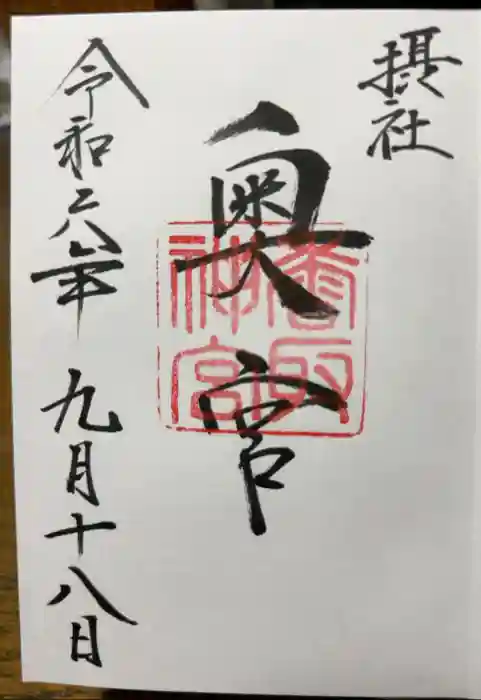 摂社
奥宮
香取
神宮
令和六年九月十八日